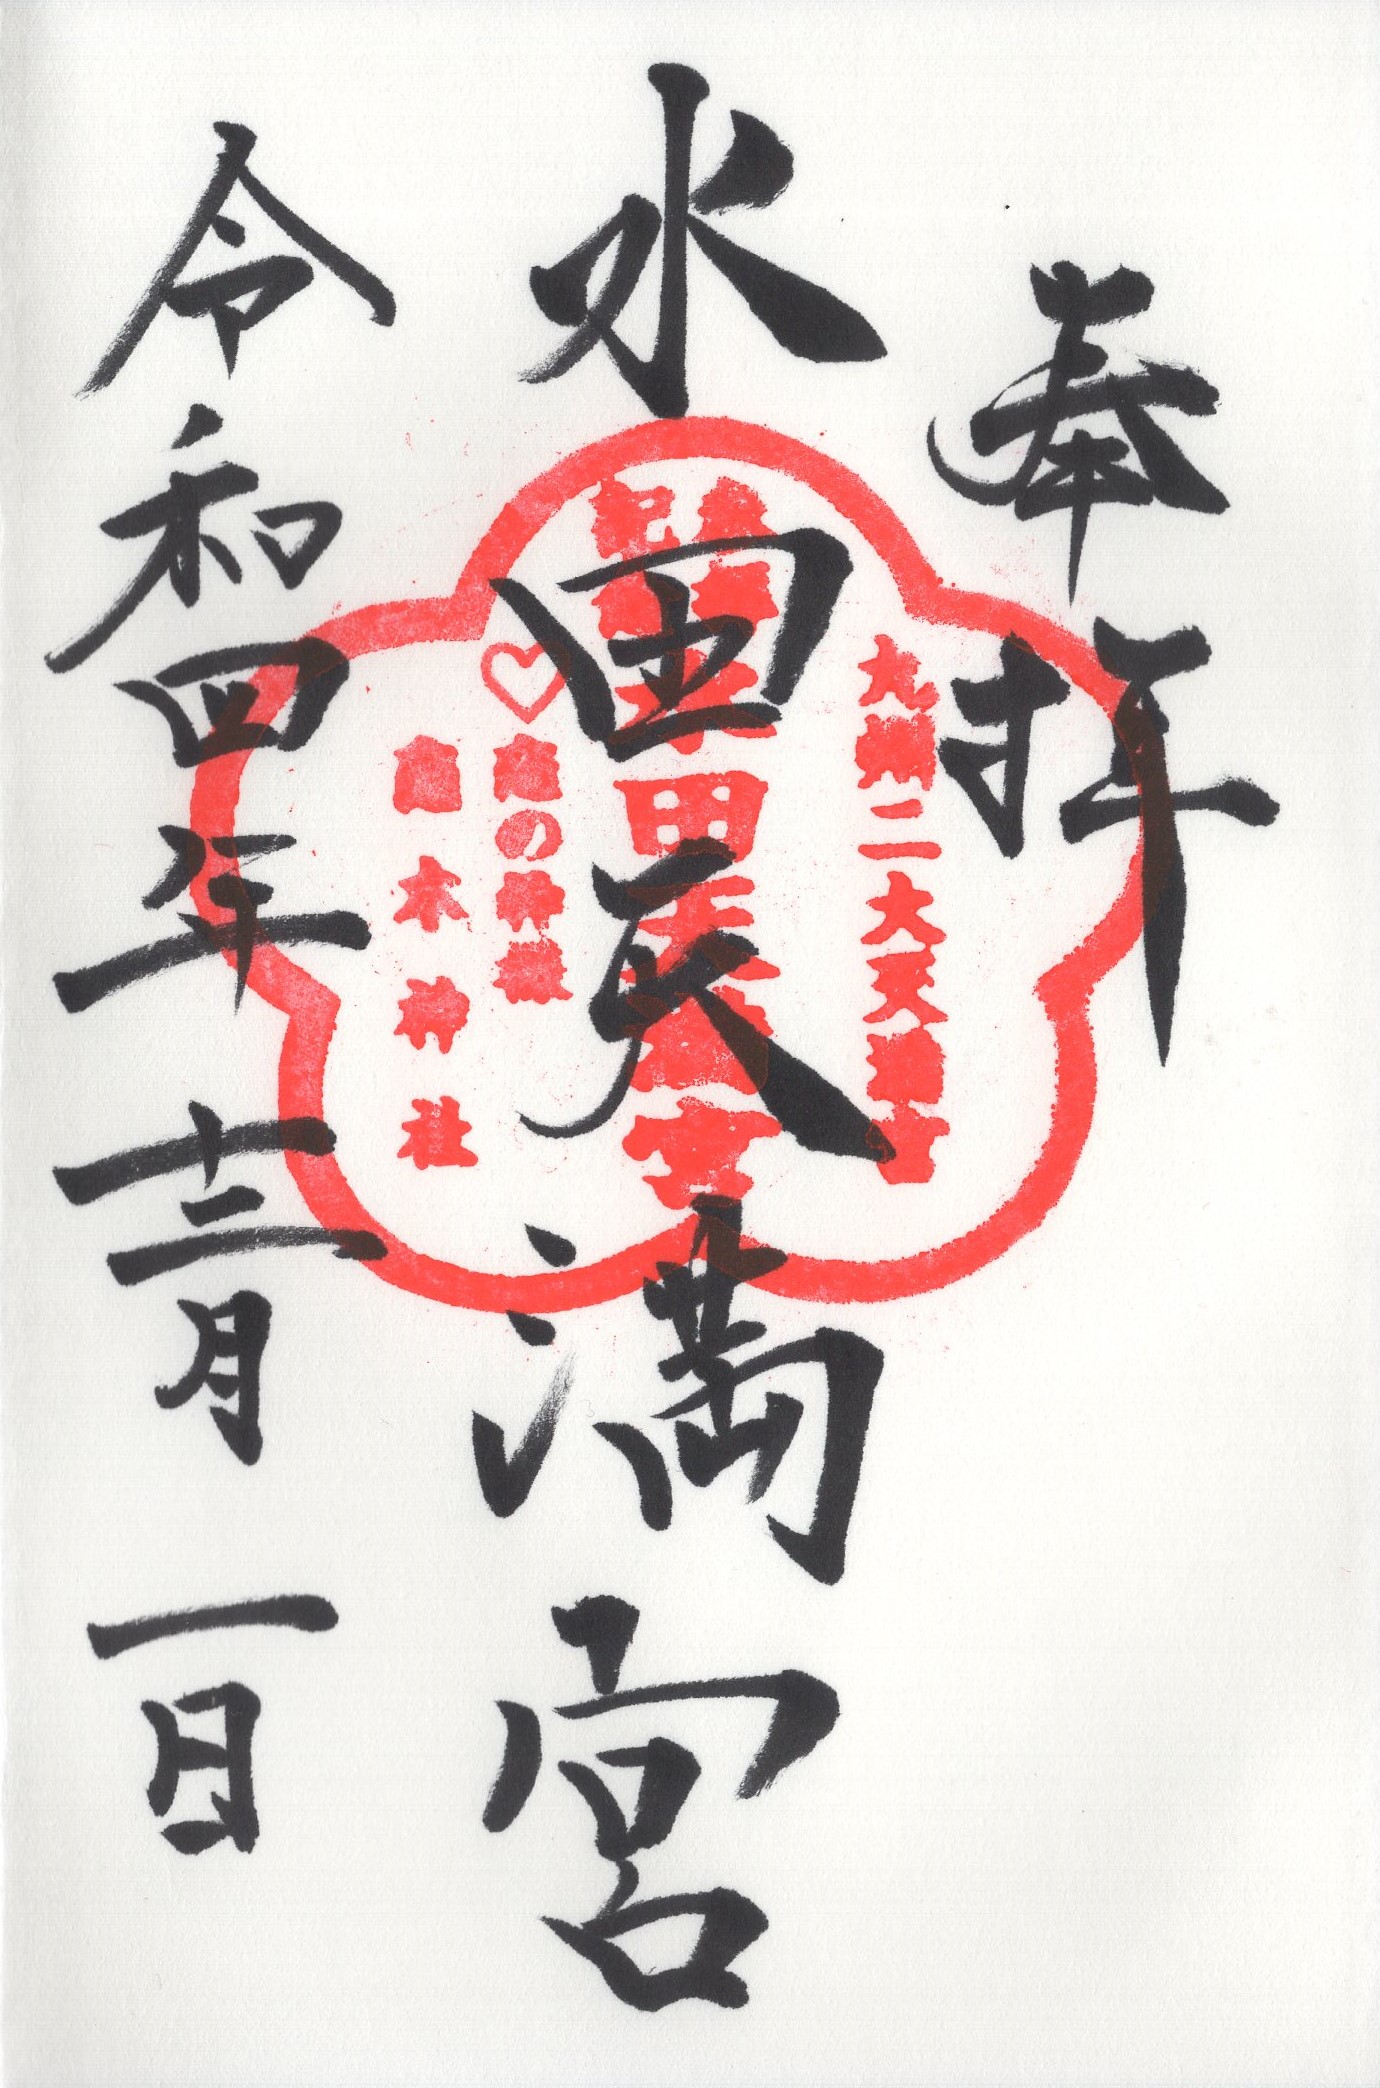 奉拝
九州二大天満宮
水田天満宮
水田天満宮
♡恋の神様
恋木神社
令和四年十二月一日